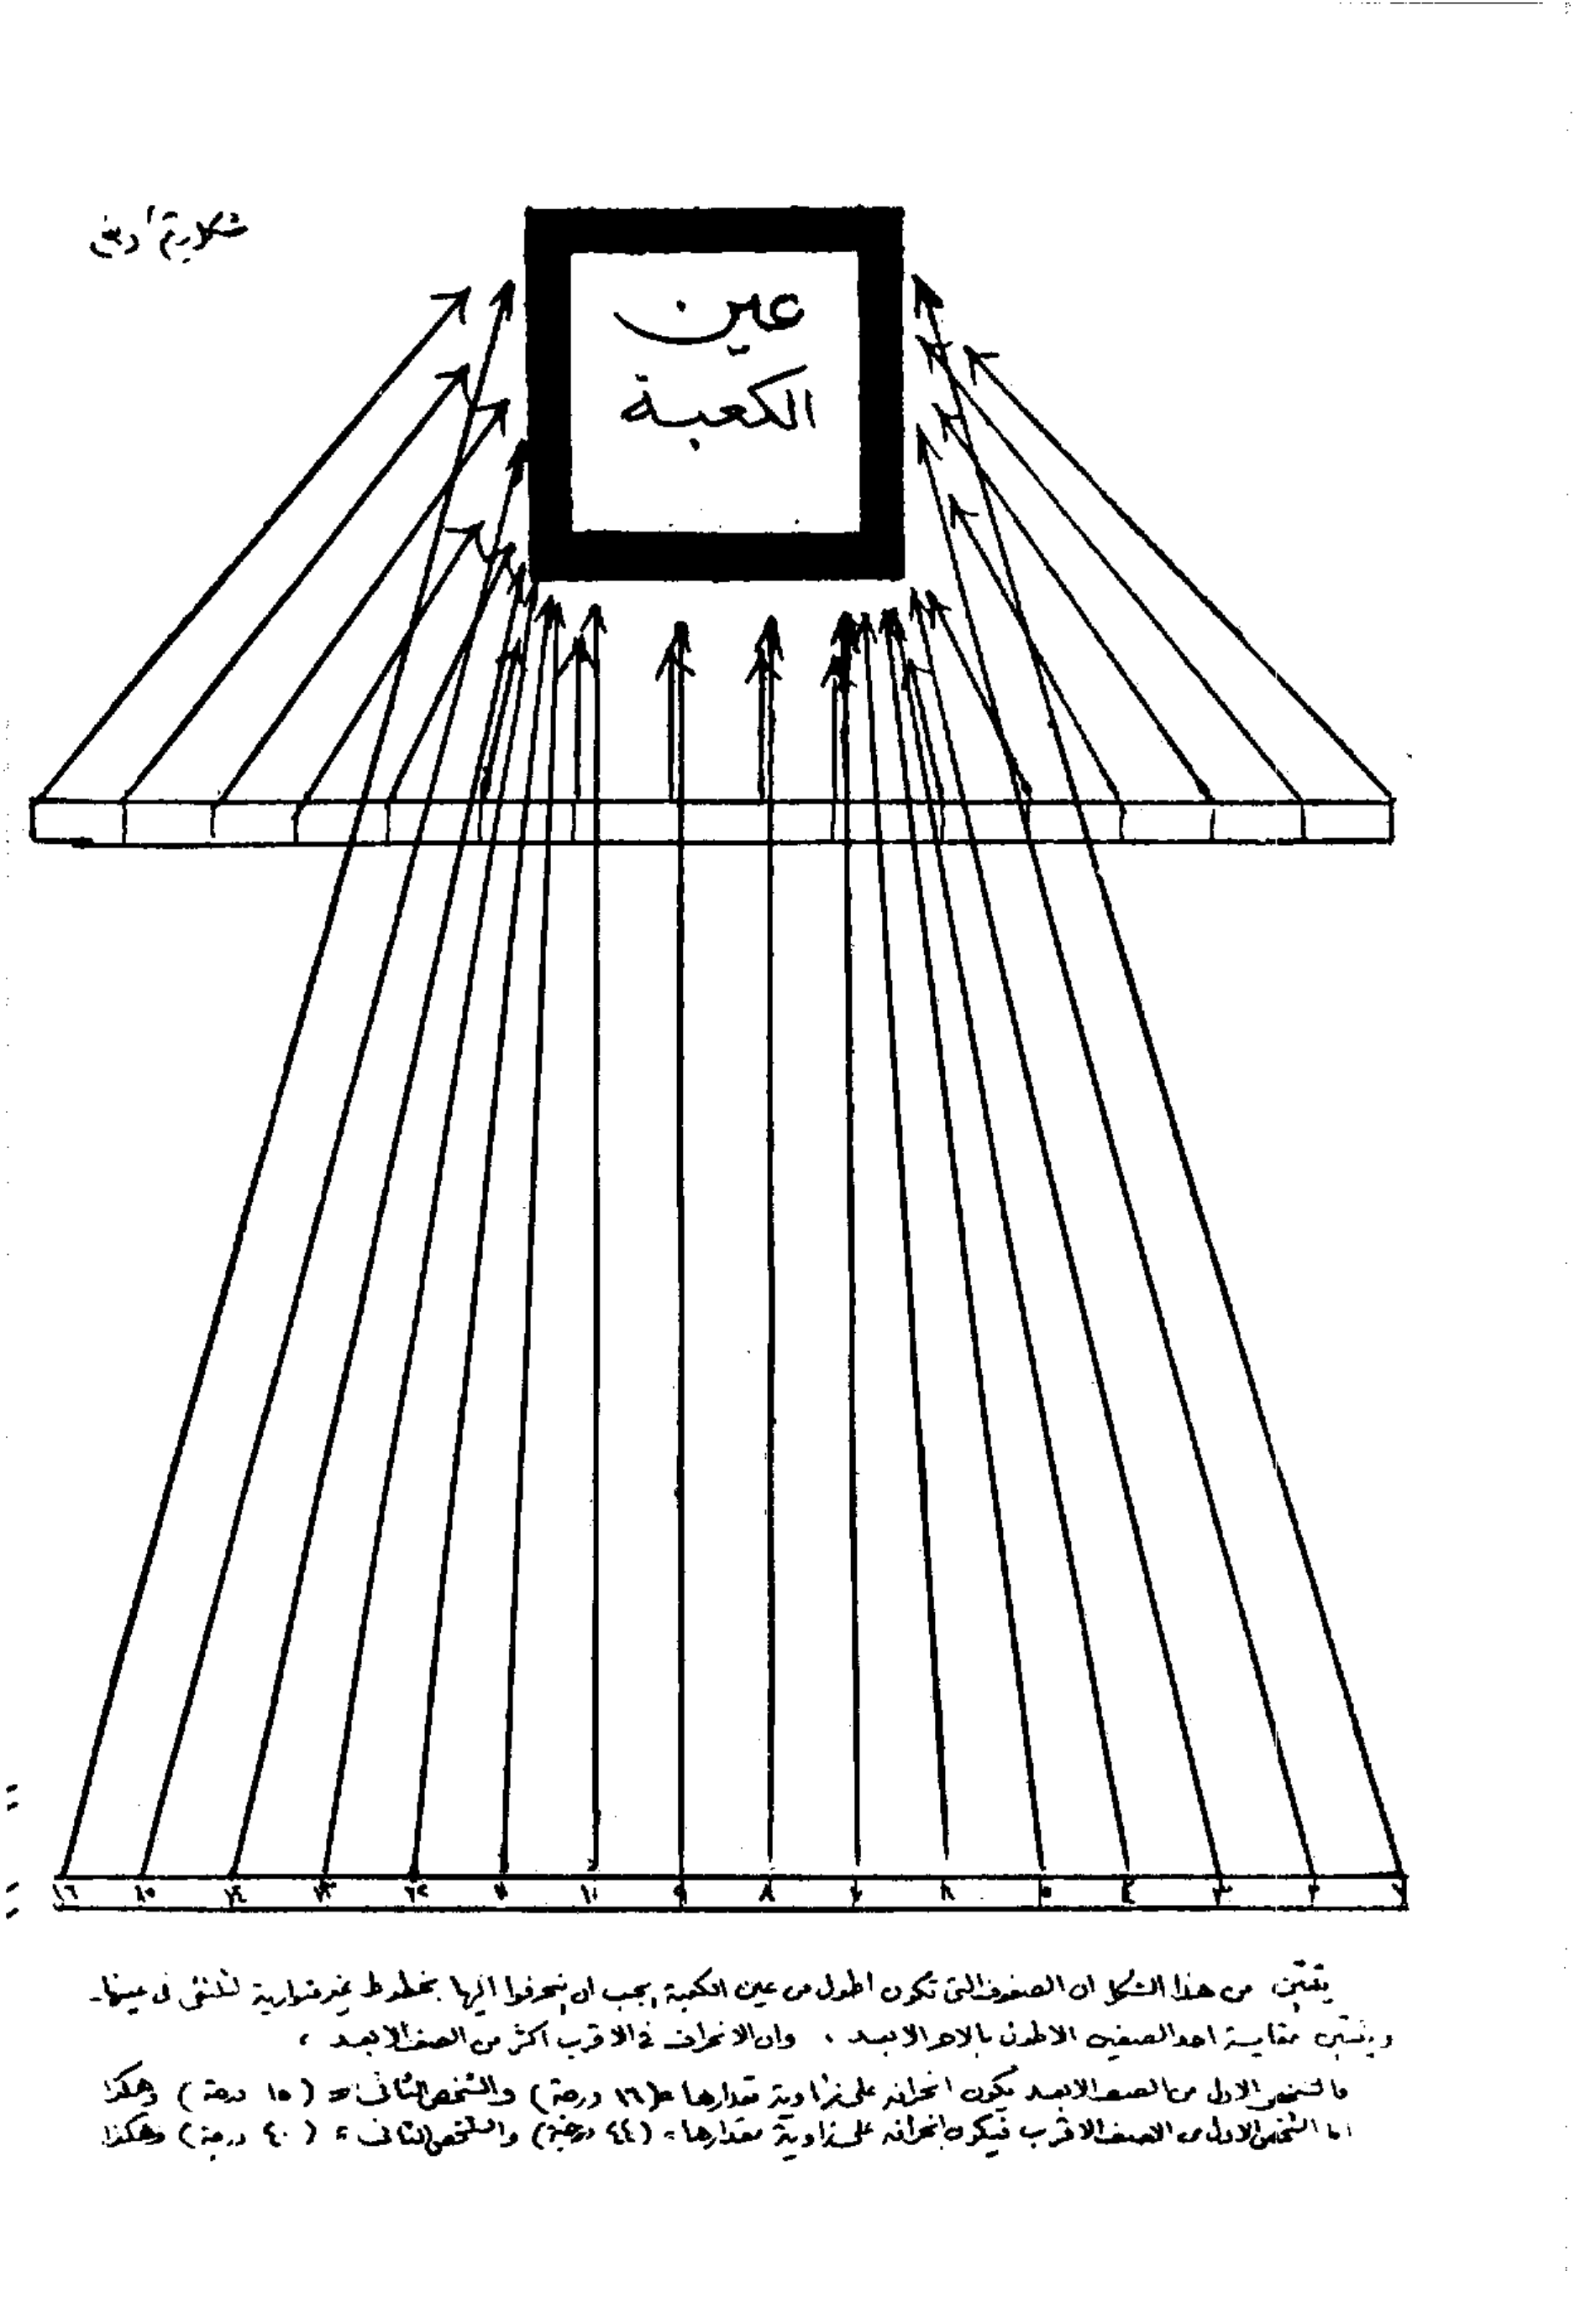 عين
الكعبة
١٦ ١٥ ١٤ ١٣ ١٢ ١١ ١٠ ٩ ٨ ٧ ٦ ٥ ٤ ٣ ٢ ١
يتبين من هذا الشكل ان الصفوف التي تكون اطول من عين الكعبة يجب ان ينحرفوا اليها بخطوط غير متوازية لتلتقي في عينها.
ويتبين مقايسة احد الصفين الاطول بالاخر الابعد ، وان الانحراف في الاقرب اكثر من الصف الابعد ،
فالشخص الاول من الصف الابعد يكون انحرافه على زاوية مقدارها = (١٦ درجة) والشخص الثاني = (١٥ درجة) وهكذا
اما الشخص الاول من الصف الاقرب فيكون انحرافه على زاوية مقدارها = (٤٤ درجة) والشخص الثاني = (٤٠ درجة) وهكذا